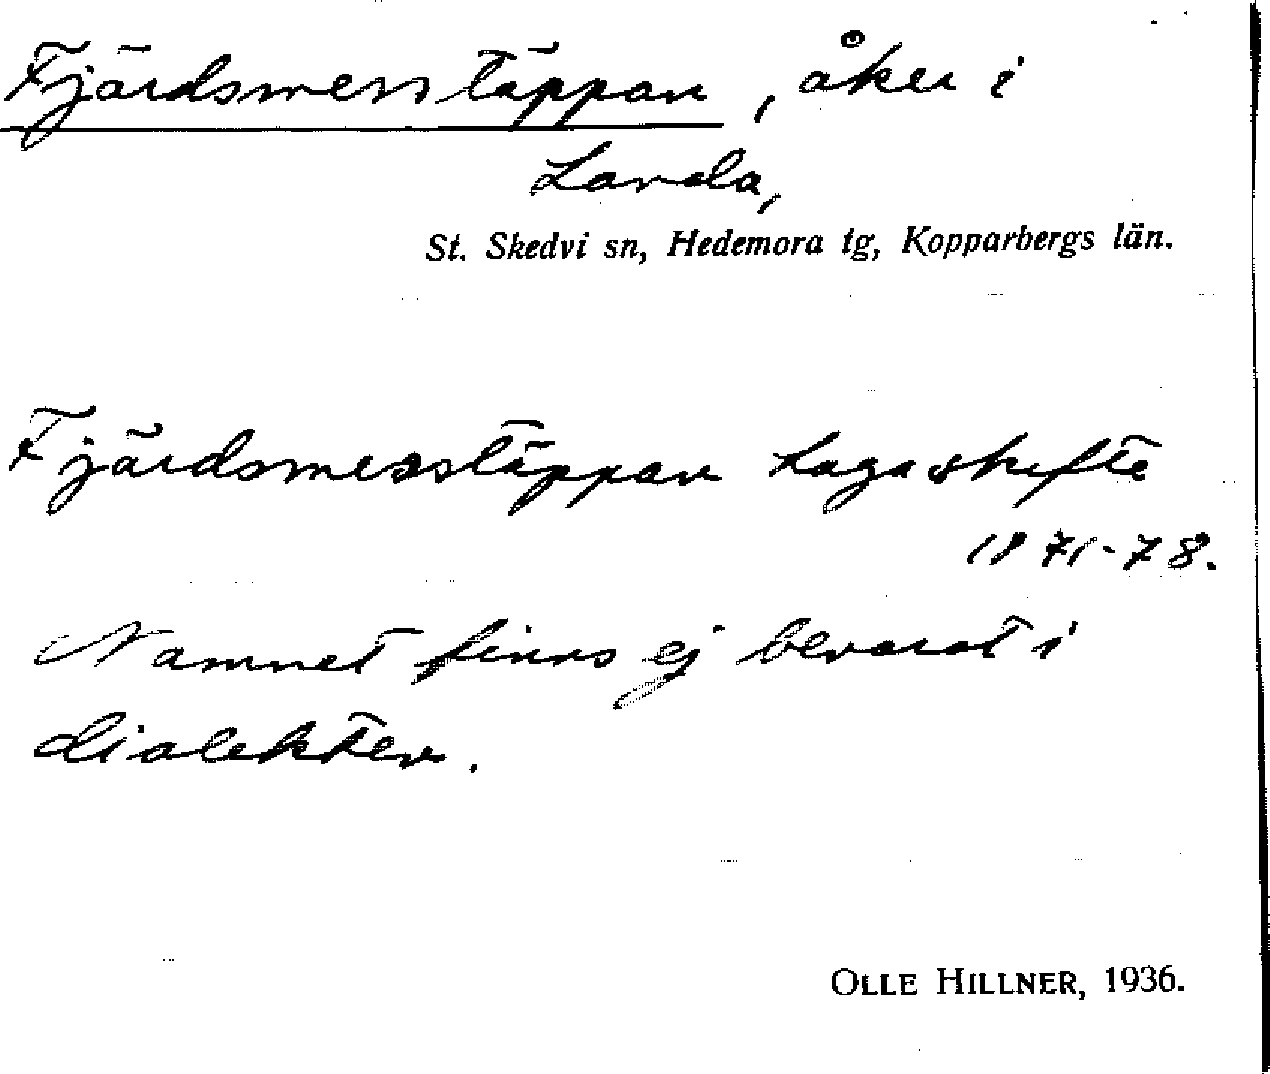 Fjärdsmesstäppan, åker i
Landa,
St. Skedvi sn, Hedemora tg, Kopparbergs län.
Fjärdsmesstäppan Laga skifte
1871-78.
Namnet finns ej bevarat i
dialekten.
OLLE HILLNER, 1936.